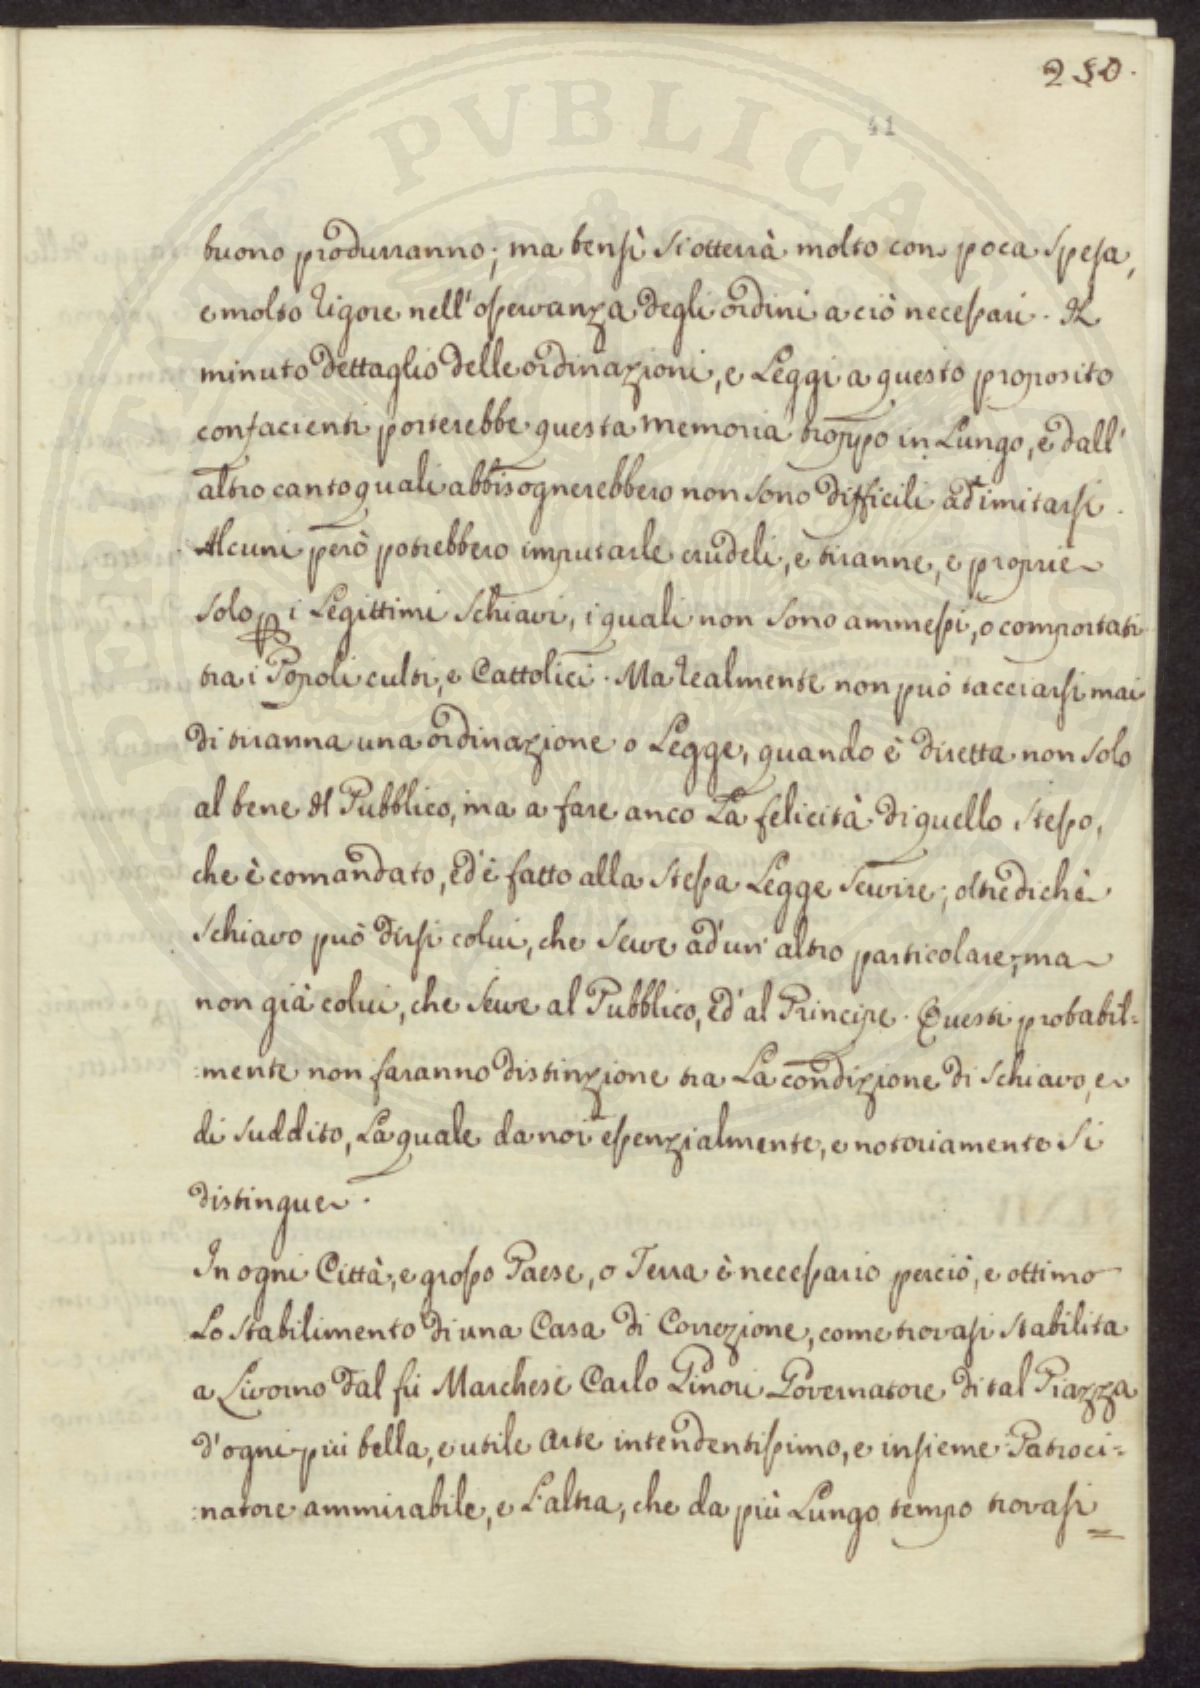 250.
41
buono produrranno; ma bensì si otterrà molto con poca spesa,
e molto rigore nell'osservanza degli ordini a ciò necessari. Il
minuto dettaglio delle ordinazioni, e Leggi a questo proposito
confacienti porterebbe questa memoria troppo in Lungo, e dall'
altro canto quali abbisognerebbero non sono difficili ad imitarsi.
Alcuni però potrebbero imputarle crudeli, e tiranne, e proprie
solo p i Legittimi Schiavi, i quali non sono ammessi, o comportati
tra i Popoli culti, e Cattolici. Ma realmente non può tacciarsi mai
di tiranna una ordinazione o Legge, quando è diretta non solo
al bene del Pubblico, ma a fare anco La felicità di quello stesso,
che è comandato, ed è fatto alla stessa Legge servire; oltredichè
schiavo può dirsi colui, che serve ad un' altro particolare, ma
non già colui, che serve al Pubblico, ed al Principe. Questi probabil=
:mente non faranno distinzione tra La condizione di schiavo, e
di suddito, La quale da noi essenzialmente, e notoriamente si
distingue.
In ogni Città, e grosso Paese, o Terra è necessario perciò, e ottimo
Lo stabilimento di una Casa di Correzione, come trovasi stabilita
a Livorno dal fù Marchese Carlo Ginori Governatore di tal Piazza
d'ogni più bella, e utile arte intendentissimo, e insieme Patroci=
:natore ammirabile, e L'altra, che da più Lungo tempo trovasi
PUBLICAE